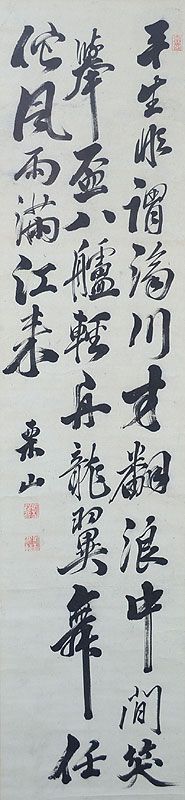 平生非謂済川才翻浪中間笑
擧盃八艫輕舟龍翼舞任
他風雨滿江来
栗山